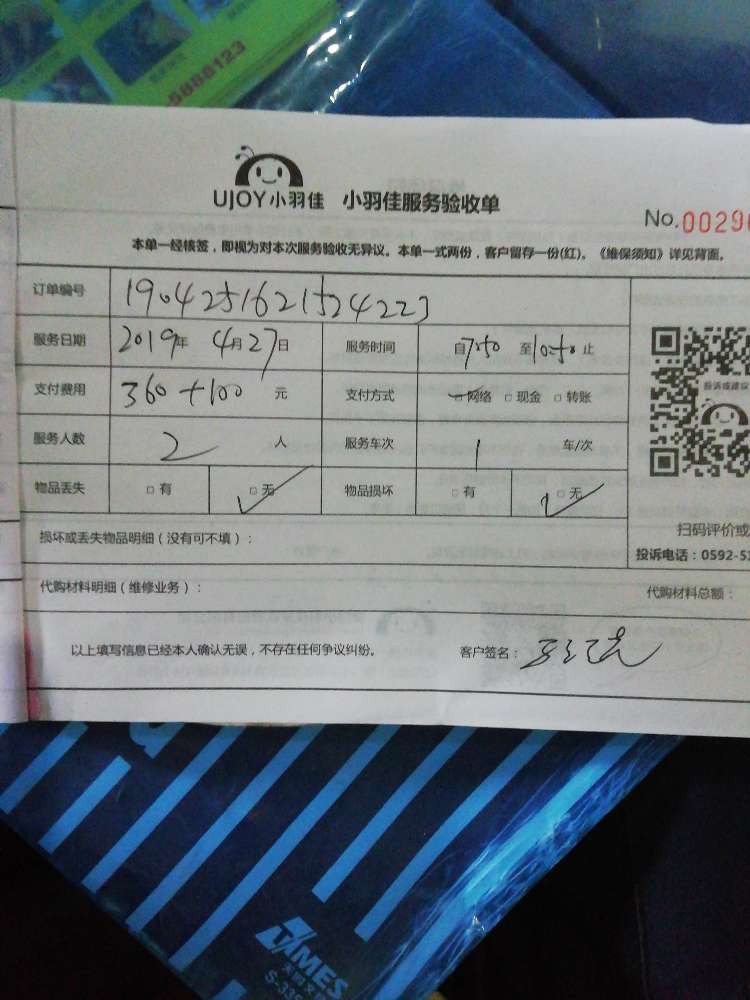 5888123
UJOY小羽佳 小羽佳服务验收单
No.0029
本单一经核签，即视为对本次服务验收无异议。本单一式两份，客户留存一份(红)。《维保须知》详见背面。
订单编号 1904251621524223
服务日期 2019年 4月27日 服务时间 自7:50 至10:50止
支付费用 360+100 元 支付方式 □网络 □现金 □转账
投诉或建议
服务人数 2 人 服务车次 1 车/次
物品丢失 □有 □无 物品损坏 □有 □无
扫码评价或
损坏或丢失物品明细（没有可不填）：
投诉电话：0592-5
代购材料明细（维修业务）：
代购材料总额：
以上填写信息已经本人确认无误，不存在任何争议纠纷。 客户签名：
TIMES